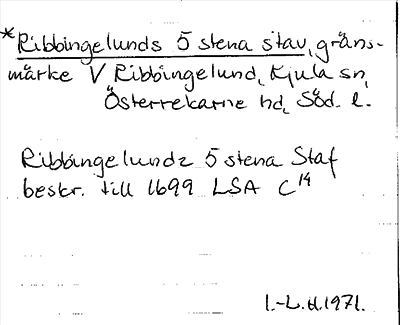 *Ribbingelunds 5 stena stav, gräns-
märke V Ribbingelund, Kjula sn,
Österrekarne hd, Söd. l.
Ribbingelundz 5 stena Staf
beskr. till 1699 LSA C¹⁴
I.-L.H.1971.